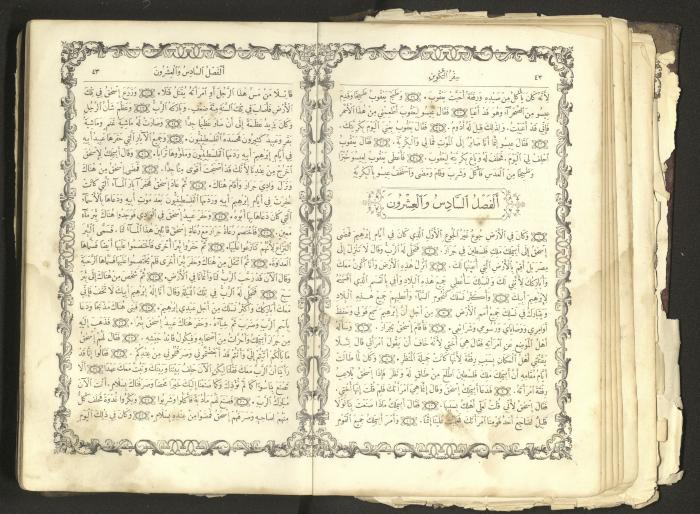 ٤٢
سِفْرُ التَّكْوِينِ
لِأَنَّهُ كَانَ يَأْكُلُ مِنْ صَيْدِهِ وَرِفْقَةُ أَحَبَّتْ يَعْقُوبَ. وَطَبَخَ يَعْقُوبُ طَبِيخًا وَقَدِمَ
عِيسُو مِنَ الصَّحْرَاءِ وَهُوَ قَدْ أَعْيَا. فَقَالَ عِيسُو لِيَعْقُوبَ أَطْعِمْنِي مِنْ هٰذَا الْأَحْمَرِ
فَإِنِّي قَدْ أَعْيَيْتُ. وَلِذٰلِكَ قِيلَ لَهُ أَدُومُ. فَقَالَ يَعْقُوبُ بِعْنِي الْيَوْمَ بِكْرِيَّتَكَ.
فَقَالَ عِيسُو إِنَّمَا أَنَا صَائِرٌ إِلَى الْمَوْتِ فَمَا لِي وَالْبِكْرِيَّةَ. فَقَالَ يَعْقُوبُ
احْلِفْ لِي الْيَوْمَ. فَحَلَفَ لَهُ وَبَاعَ بِكْرِيَّتَهُ لِيَعْقُوبَ. فَأَعْطَى يَعْقُوبُ عِيسُوَ خُبْزًا
وَطَبِيخًا مِنَ الْعَدَسِ فَأَكَلَ وَشَرِبَ وَقَامَ وَمَضَى وَاسْتَخَفَّ عِيسُو بِالْبِكْرِيَّةِ
أَلْفَصْلُ السَّادِسُ وَالْعِشْرُونَ
وَكَانَ فِي الْأَرْضِ جُوعٌ غَيْرُ الْجُوعِ الْأَوَّلِ الَّذِي كَانَ فِي أَيَّامِ إِبْرٰهِيمَ فَمَضَى
إِسْحٰقُ إِلَى أَبِيمَلِكَ مَلِكِ فَلَسْطِينَ فِي جَرَارَ. فَتَجَلَّى لَهُ الرَّبُّ وَقَالَ لَا تَنْزِلْ إِلَى
مِصْرَ بَلْ أَقِمْ بِالْأَرْضِ الَّتِي أُعَيِّنُهَا لَكَ. انْزِلْ هٰذِهِ الْأَرْضَ وَأَنَا أَكُونُ مَعَكَ
وَأُبَارِكُكَ لِأَنِّي لَكَ وَلِنَسْلِكَ سَأُعْطِي جَمِيعَ هٰذِهِ الْبِلَادِ وَأَفِي بِالْقَسَمِ الَّذِي أَقْسَمْتُهُ
لِإِبْرٰهِيمَ أَبِيكَ. وَأُكَثِّرُ نَسْلَكَ كَنُجُومِ السَّمَاءِ وَأُعْطِيهِمْ جَمِيعَ هٰذِهِ الْبِلَادِ
وَيَتَبَارَكُ فِي نَسْلِكَ جَمِيعُ أُمَمِ الْأَرْضِ. مِنْ أَجْلِ أَنَّ إِبْرٰهِيمَ سَمِعَ قَوْلِي وَحَفِظَ
أَوَامِرِي وَوَصَايَايَ وَرُسُومِي وَشَرَائِعِي. فَأَقَامَ إِسْحٰقُ بِجَرَارَ. وَسَأَلَهُ
أَهْلُ الْمَوْضِعِ عَنِ امْرَأَتِهِ فَقَالَ هِيَ أُخْتِي لِأَنَّهُ خَافَ أَنْ يَقُولَ امْرَأَتِي قَالَ لِئَلَّا
يَقْتُلَنِي أَهْلُ الْمَكَانِ بِسَبَبِ رِفْقَةَ لِأَنَّهَا كَانَتْ جَمِيلَةَ الْمَنْظَرِ. وَكَانَ لَمَّا طَالَتْ
أَيَّامُ مُقَامِهِ أَنَّ أَبِيمَلِكَ مَلِكَ فَلَسْطِينَ اطَّلَعَ مِنْ طَاقٍ لَهُ وَنَظَرَ فَإِذَا إِسْحٰقُ يُلَاعِبُ
رِفْقَةَ امْرَأَتَهُ. فَدَعَا أَبِيمَلِكُ إِسْحٰقَ وَقَالَ إِنَّمَا هِيَ امْرَأَتُكَ فَلِمَ قُلْتَ إِنَّهَا أُخْتِي.
فَقَالَ إِسْحٰقُ لِأَنِّي قُلْتُ لَعَلِّي أَهْلِكُ بِسَبَبِهَا. فَقَالَ أَبِيمَلِكُ مَاذَا صَنَعْتَ بِنَا لَوْلَا
قَلِيلٌ لَضَاجَعَ أَحَدُ قَوْمِنَا امْرَأَتَكَ فَجَلَبْتَ عَلَيْنَا إِثْمًا. وَأَمَرَ أَبِيمَلِكُ جَمِيعَ الْقَوْمِ
أَلْفَصْلُ السَّادِسُ وَالْعِشْرُونَ
٤٣
قَائِلًا مَنْ مَسَّ هٰذَا الرَّجُلَ أَوِ امْرَأَتَهُ يُقْتَلُ قَتْلًا. وَزَرَعَ إِسْحٰقُ فِي تِلْكَ
الْأَرْضِ فَأَصَابَ فِي تِلْكَ السَّنَةِ مِئَةَ ضِعْفٍ. وَبَارَكَهُ الرَّبُّ. وَعَظُمَ شَأْنُ الرَّجُلِ
وَكَانَ يَزِيدُ عَظَمَةً إِلَى أَنْ صَارَ عَظِيمًا جِدًّا. وَصَارَتْ لَهُ مَاشِيَةُ غَنَمٍ وَمَاشِيَةُ
بَقَرٍ وَعَبِيدٌ كَثِيرُونَ فَحَسَدَهُ الْفَلَسْطِينِيُّونَ. وَجَمِيعُ الْآبَارِ الَّتِي حَفَرَهَا عَبِيدُ أَبِيهِ
فِي أَيَّامِ إِبْرٰهِيمَ أَبِيهِ رَدَمَهَا الْفَلَسْطِينِيُّونَ وَمَلَأُوهَا تُرَابًا. وَقَالَ أَبِيمَلِكُ لِإِسْحٰقَ
اخْرُجْ مِنْ عِنْدِنَا لِأَنَّكَ قَدْ أَصْبَحْتَ أَقْوَى مِنَّا جِدًّا. فَمَضَى إِسْحٰقُ مِنْ هُنَاكَ
وَنَزَلَ وَادِيَ جَرَارَ وَأَقَامَ هُنَاكَ. ثُمَّ عَادَ إِسْحٰقُ فَحَفَرَ آبَارَ الْمَاءِ الَّتِي كَانَتْ
حُفِرَتْ فِي أَيَّامِ إِبْرٰهِيمَ أَبِيهِ وَرَدَمَهَا الْفَلَسْطِينِيُّونَ بَعْدَ مَوْتِ أَبِيهِ وَدَعَاهَا بِالْأَسْمَاءِ
الَّتِي كَانَ دَعَاهَا بِهَا أَبُوهُ. وَحَفَرَ عَبِيدُ إِسْحٰقَ فِي الْوَادِي فَوَجَدُوا هُنَاكَ بِئْرَ مَاءٍ
مَعِينٍ. فَاخْتَصَمَ رُعَاةُ جَرَارَ مَعَ رُعَاةِ إِسْحٰقَ قَائِلِينَ هٰذَا الْمَاءُ لَنَا. فَسَمَّى الْبِئْرَ
النِّزَاعَ لِأَنَّهُمْ تَنَازَعُوا عَلَيْهَا. ثُمَّ حَفَرُوا بِئْرًا أُخْرَى فَاخْتَصَمُوا عَلَيْهَا أَيْضًا فَسَمَّاهَا
الْعَدَاوَةَ. ثُمَّ انْتَقَلَ مِنْ هُنَاكَ وَحَفَرَ بِئْرًا أُخْرَى فَلَمْ يَخْتَصِمُوا عَلَيْهَا فَسَمَّاهَا الرُّحْبَةَ
وَقَالَ الْآنَ قَدْ رَحَّبَ الرَّبُّ لَنَا وَأَنْمَانَا فِي الْأَرْضِ. ثُمَّ شَخَصَ مِنْ هُنَاكَ إِلَى بِئْرِ
سَبْعٍ. فَتَجَلَّى لَهُ الرَّبُّ فِي تِلْكَ اللَّيْلَةِ وَقَالَ أَنَا إِلٰهُ إِبْرٰهِيمَ أَبِيكَ لَا تَخَفْ فَإِنِّي
مَعَكَ أُبَارِكُكَ وَأُكَثِّرُ نَسْلَكَ مِنْ أَجْلِ عَبْدِي إِبْرٰهِيمَ. فَبَنَى هُنَاكَ مَذْبَحًا وَدَعَا
بِاسْمِ الرَّبِّ وَضَرَبَ ثَمَّ خِبَاءَهُ. وَحَفَرَ هُنَاكَ عَبِيدُ إِسْحٰقَ بِئْرًا. فَذَهَبَ إِلَيْهِ
مِنْ جَرَارَ أَبِيمَلِكُ وَأَحُزَّاتُ مِنْ أَصْحَابِهِ وَفِيكُولُ قَائِدُ جَيْشِهِ. فَقَالَ لَهُمْ إِسْحٰقُ
مَا بَالُكُمْ أَتَيْتُمْ إِلَيَّ وَأَنْتُمْ قَدْ أَبْغَضْتُمُونِي وَصَرَفْتُمُونِي مِنْ عِنْدِكُمْ. فَقَالُوا إِنَّا قَدْ
رَأَيْنَا أَنَّ الرَّبَّ مَعَكَ فَقُلْنَا لِيَكُنِ الْآنَ حِلْفٌ بَيْنَنَا وَبَيْنَكَ وَنَبُتَّ مَعَكَ عَهْدًا. أَنْ لَا
تَصْنَعَ بِنَا سُوءًا كَمَا لَمْ نُؤْذِكَ وَكَمَا صَنَعْنَا إِلَيْكَ خَيْرًا مَحْضًا وَصَرَفْنَاكَ بِسَلَامٍ. أَنْتَ الْآنَ
مُبَارَكُ الرَّبِّ. فَصَنَعَ لَهُمْ مَأْدُبَةً فَأَكَلُوا وَشَرِبُوا. وَبَكَّرُوا بُالْغَدَاةِ فَحَلَفَ كُلٌّ
مِنْهُمْ لِصَاحِبِهِ وَصَرَفَهُمْ إِسْحٰقُ فَمَضَوْا مِنْ عِنْدِهِ بِسَلَامٍ. وَكَانَ فِي ذٰلِكَ الْيَوْمِ